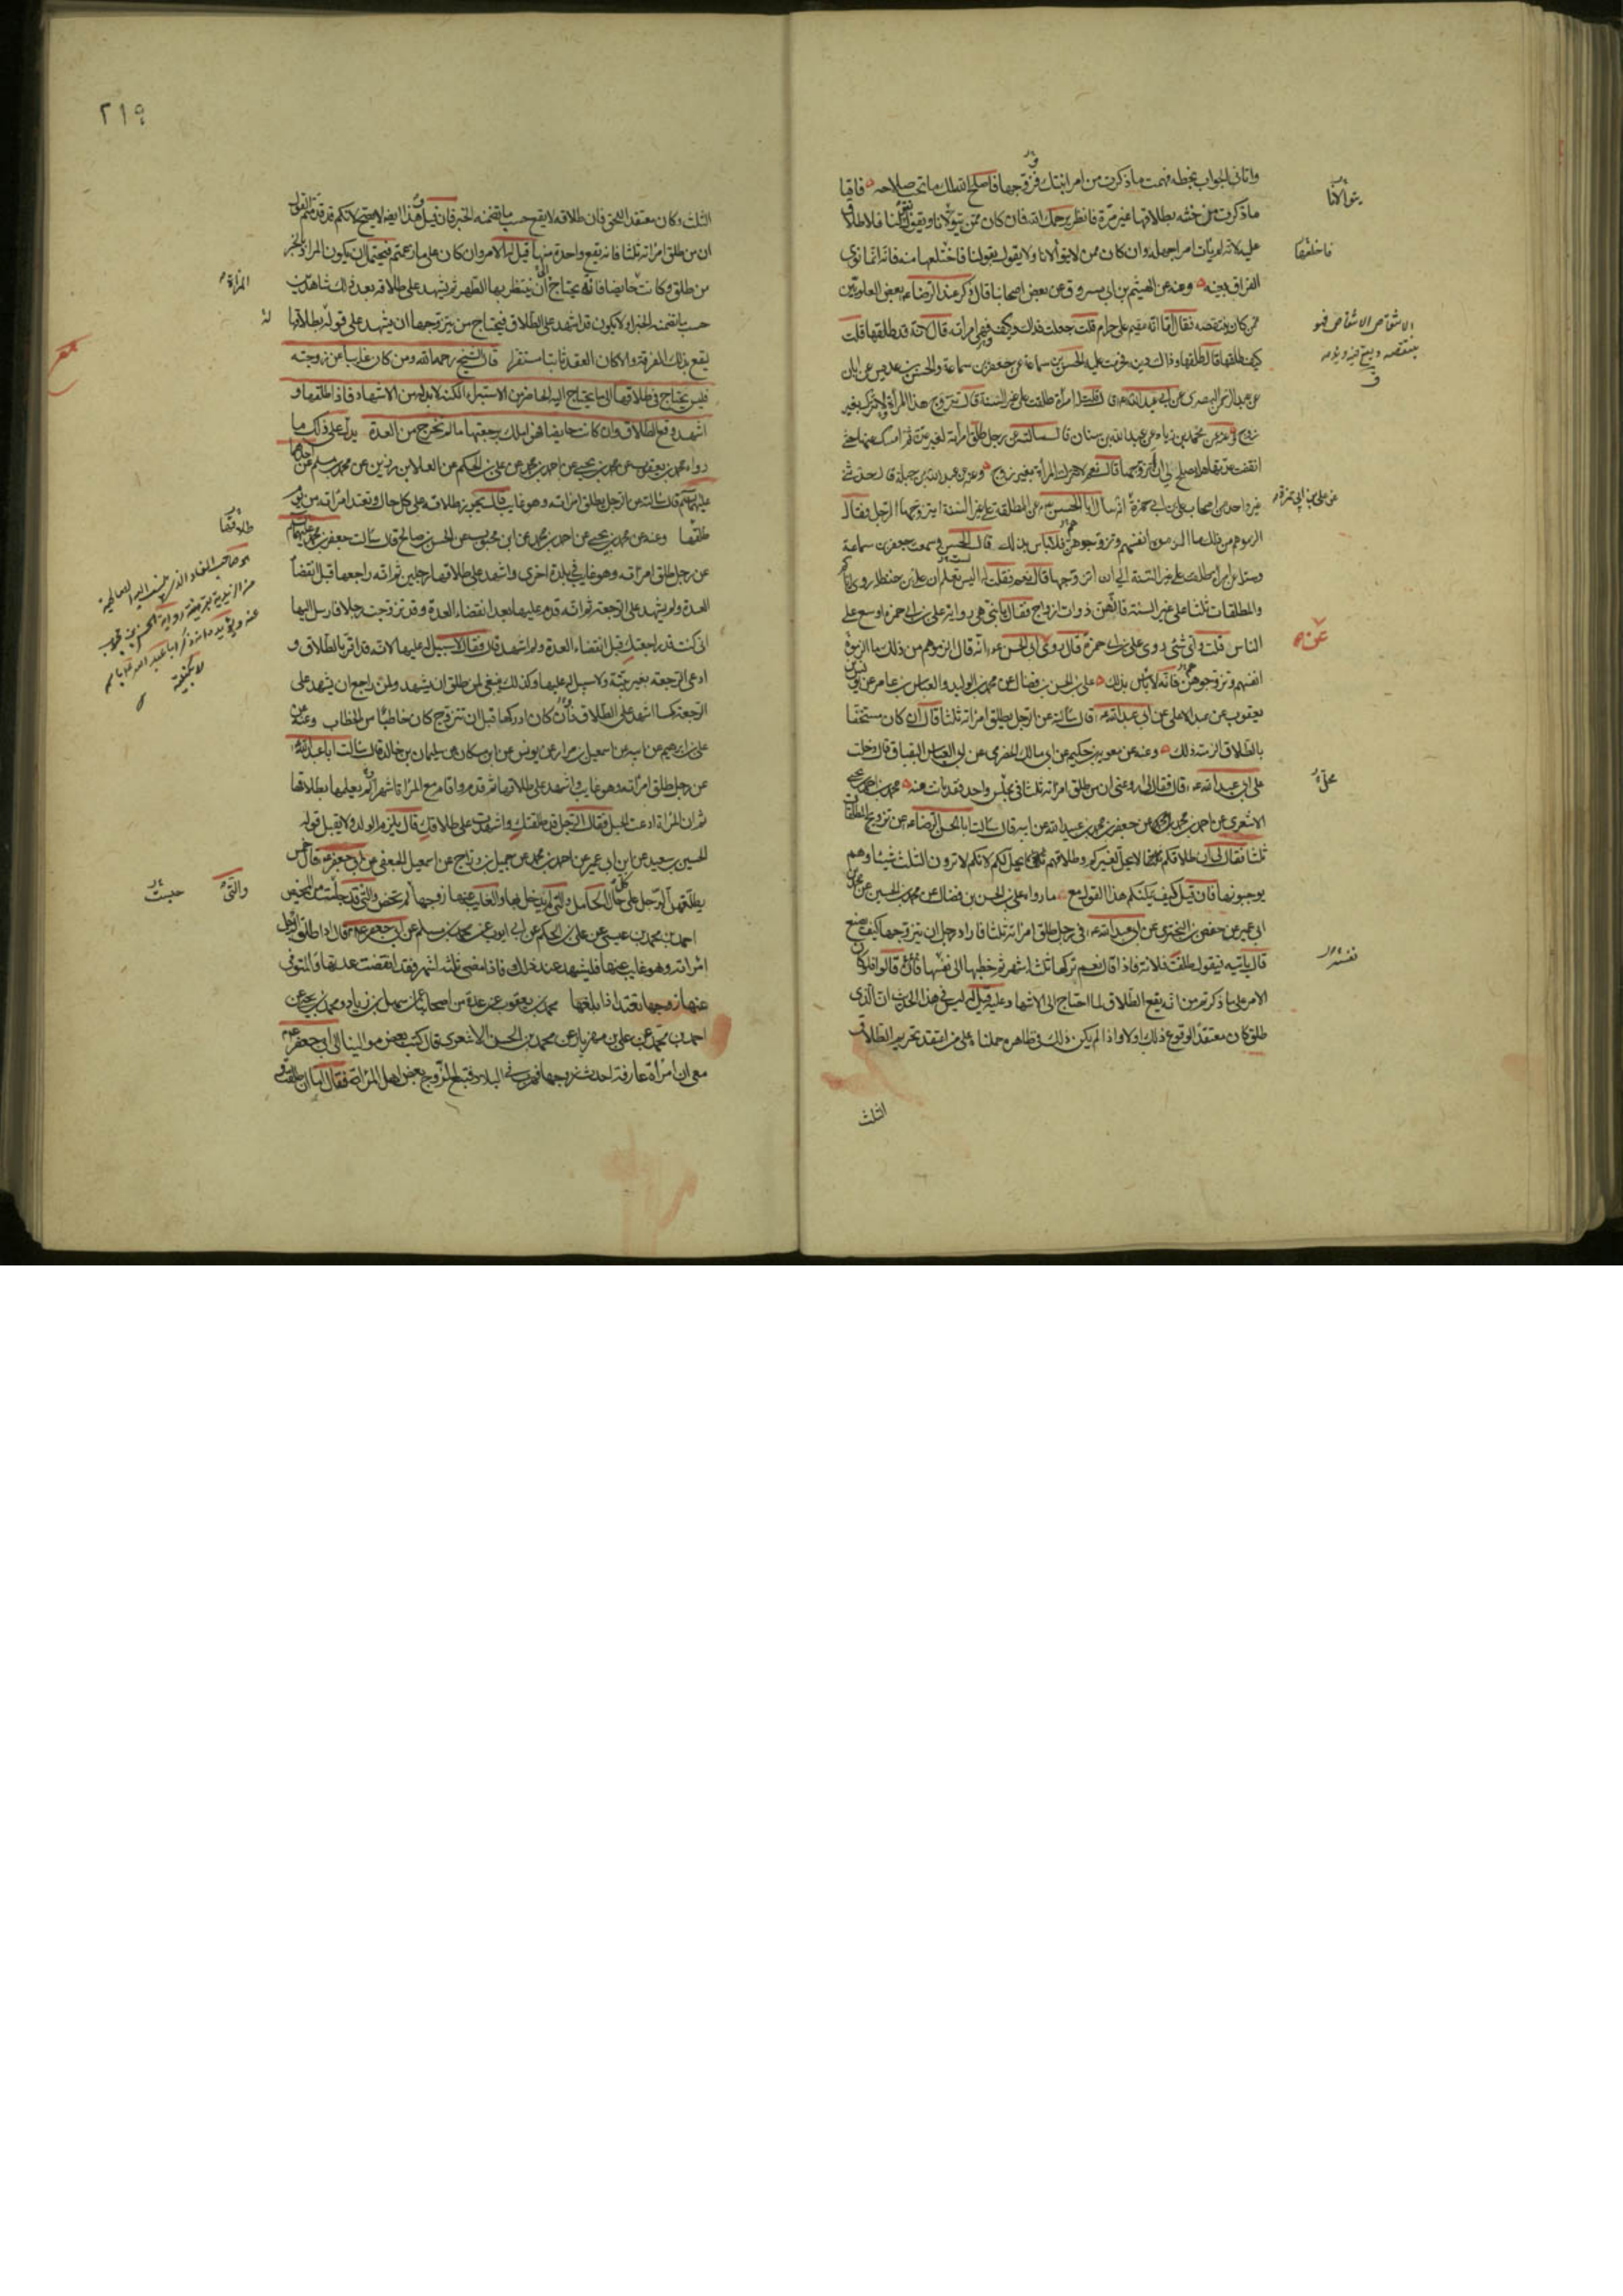 واتاني الجواب بخطه فهمت ما ذكرت من امر ابنتك وزوجها فاصلح الله لك ما تحب صلاحه فاما
ما ذكرت من حنثه بطلاقها غير مرة فانظر يرحمك الله فان كان ممن يتولانا ويقول بقولنا فلا طلاق
عليه لانه لم يأت امرا جهله وان كان ممن لا يتولانا ولا يقول بقولنا فاختلعها منه فانه انما نوى
الفراق بعينه وعنه عن الهيثم بن ابي مسروق عن بعض اصحابنا قال ذكر عند الرضا ء بعض العلويين
ممن كان ينتقصه فقال اما انه مقيم على حرام قلت جعلت فداك وكيف وهي امراته قال لانه قد طلقها قلت
كيف طلقها قال طلقها وذاك دينه فحرمت عليه الحسن بن سماعة عن جعفر بن سماعة والحسن بن عديس عن ابان
عن عبد الرحمن البصري عن ابي عبد الله ء قال قلت له امراة طلقت على غير السنة قال تتزوج هذه المرأة لا تترك بغير
زوج وعنه عن محمد بن زياد عن عبد الله بن سنان قال سالته عن رجل طلق امراته لغير عدة ثم امسك عنها حتى
انقضت عدتها هل يصلح لي ان اتزوجها قال نعم لا تترك المرأة بغير زوج وعنه عن عبد الله بن جبلة قال حدثني
غير واحد من اصحاب علي بن ابي حمزة انه سال ابا الحسن ء عن المطلقة على غير السنة ايتزوجها الرجل فقال
الزموهم من ذلك ما الزموه انفسهم وتزوجوهن فلا باس بذلك قال الحسن وسمعت جعفر بن سماعة
وسئل عن امراة طلقت على غير السنة الي ان اتزوجها قال نعم فقلت له اليس تعلم ان علي بن حنظلة روى اياكم
والمطلقات ثلثا على غير السنة فانهن ذوات ازواج فقال يا بني هي رواية علي بن ابي حمزة اوسع على
الناس قلت واي شئ روى علي بن ابي حمزة قال روى عن ابي الحسن ء انه قال الزموهم من ذلك ما الزموه
انفسهم وتزوجوهن فانه لا باس بذلك علي بن الحسن بن فضال عن محمد بن الوليد والعباس بن عامر عن يونس بن
يعقوب عن عبد الاعلى عن ابي عبد الله ء قال سالته عن الرجل يطلق امراته ثلثا قال ان كان مستخفا
بالطلاق الزمته ذلك وعنه عن معوية بن حكيم عن ابي مالك الحضرمي عن ابي العباس البقباق قال دخلت
على ابي عبد الله ء قال فقال لي ارو عني ان من طلق امراته ثلثا في مجلس واحد فقد بانت منه محمد بن احمد بن يحيى
الاشعري عن احمد بن محمد عن جعفر بن محمد بن عبيد الله عن ابيه قال سالت ابا الحسن الرضا ء عن تزويج المطلقات
ثلثا فقال لي ان طلاقكم لا يحل لغيركم وطلاقهم يحل لكم لانكم لا ترون الثلث شيئا وهم
يوجبونها فان قيل كيف يمكنكم هذا القول مع ما رواه علي بن الحسن بن فضال عن محمد بن الحسين عن محمد بن
ابي عمير عن حفص بن البختري عن ابي عبد الله ء في رجل طلق امراته ثلثا فاراد رجل ان يتزوجها كيف يصنع
قال ياتيه فيقول طلقت فلانة فاذا قال نعم تركها ثلثة اشهر ثم خطبها الى نفسها قالوا فلو كان
الامر على ما ذكرتم من انه يقع الطلاق لما احتاج الى الاشهاد عليه قيل له ليس في هذا الحديث ان الذي
طلق كان معتقدا لوقوع ذلك اولا واذا لم يكن ذلك في ظاهره حملناه على من اعتقد تحريم الطلاق
الثلث
يتولانا
فاختلعها
عن علي بن ابي حمزة
عنه
نفسه
٢١٩
الثلث وكان معتقد الحق فان طلاقه لا يقع حسب ما يتضمنه الخبر فان قيل هذا ايضا لا يصح لانكم قد قدمتم القول
ان من طلق امراته ثلثا فانه يقع واحدة منها قيل له الامر وان كان على ما زعمتم فيحتمل ان يكون المراد بالخبر
من طلق وكانت حايضا فانه يحتاج الى ان ينتظر بها الطهر ثم يشهد على طلاقه بعد ذلك شاهدين
حسب ما يتضمنه الخبر او لا يكون قد اشهد على الطلاق فيحتاج من يتزوجها ان يشهد على قوله بطلاقها
يقع بذلك الفرقة والا كان العقد ثابتا مستقرا قال الشيخ رحمه الله ومن كان غايبا عن زوجته
فليس يحتاج في طلاقها الى ما يحتاج اليه الحاضر من الاستبراء لكنه لا بد له من الاشهاد فاذا طلقها و
اشهد وقع الطلاق وان كانت حايضا فهو املك برجعتها ما لم تخرج من العدة يدل على ذلك ما
رواه محمد بن يعقوب عن محمد بن يحيى عن احمد بن محمد عن علي بن الحكم عن العلا بن رزين عن محمد بن مسلم عن احدهما
عليهما السلم قال سالته عن الرجل يطلق امراته وهو غايب قال يجوز طلاقه على كل حال وتعتد امراته من يوم
طلقها وعنه عن محمد بن يحيى عن احمد بن محمد عن ابن محبوب عن الحسن بن صالح قال سالت جعفر بن محمد عليهما السلم
عن رجل طلق امراته وهو غايب في بلدة اخرى واشهد على طلاقها رجلين ثم انه راجعها قبل انقضاء
العدة ولم يشهد على الرجعة ثم انه قدم عليها بعد انقضاء العدة وقد تزوجت رجلا فارسل اليها
اني كنت قد راجعتك قبل انقضاء العدة ولم اشهد قال فقال لا سبيل له عليها لانه قد اقر بالطلاق و
ادعى الرجعة بغير بينة ولا سبيل له عليها وكذلك ينبغي لمن طلق ان يشهد ولمن راجع ان يشهد على
الرجعة كما اشهد على الطلاق فان كان ادركها قبل ان تتزوج كان خاطبا من الخطاب وعنه عن
علي بن ابرهيم عن ابيه عن اسمعيل بن مرار عن يونس عن ابن مسكان عن سليمان بن خالد قال سالت ابا عبد الله ء
عن رجل طلق امراته وهو غايب واشهد على طلاقها ثم قدم واقام مع المراة اشهرا لم يعلمها بطلاقها
ثم ان المراة ادعت الحبل فقال الرجل قد طلقتك واشهدت على طلاقك قال يلزم الولد ولا يقبل قوله
الحسين بن سعيد عن ابن ابي عمير عن احمد بن محمد عن جميل بن دراج عن اسمعيل الجعفي عن ابي جعفر ء قال خمس
يطلقهن الرجل على كل حال الحامل والتي لم يدخل بها والغايب عنها زوجها والتي لم تحض والتي قد جلست من المحيض
احمد بن محمد بن عيسى عن علي بن الحكم عن ابي ايوب عن محمد بن مسلم عن ابي جعفر ء قال اذا طلق الرجل
امراته وهو غايب عنها فليشهد عند ذلك فاذا مضى ثلثة اشهر فقد انقضت عدتها والمتوفى
عنها زوجها تعتد اذا بلغها محمد بن يعقوب عن عدة من اصحابنا عن سهل بن زياد ومحمد بن يحيى عن
احمد بن محمد عن علي بن مهزيار عن محمد بن الحسن الاشعري قال كتب بعض موالينا الى ابي جعفر ء
معي ان امراة عارفة احدث زوجها فهرب في البلاد فتبع الزوج بعض اهل المراة فقال اما ان طلقت و
المراة
له
طلاقها
والتي
حيث